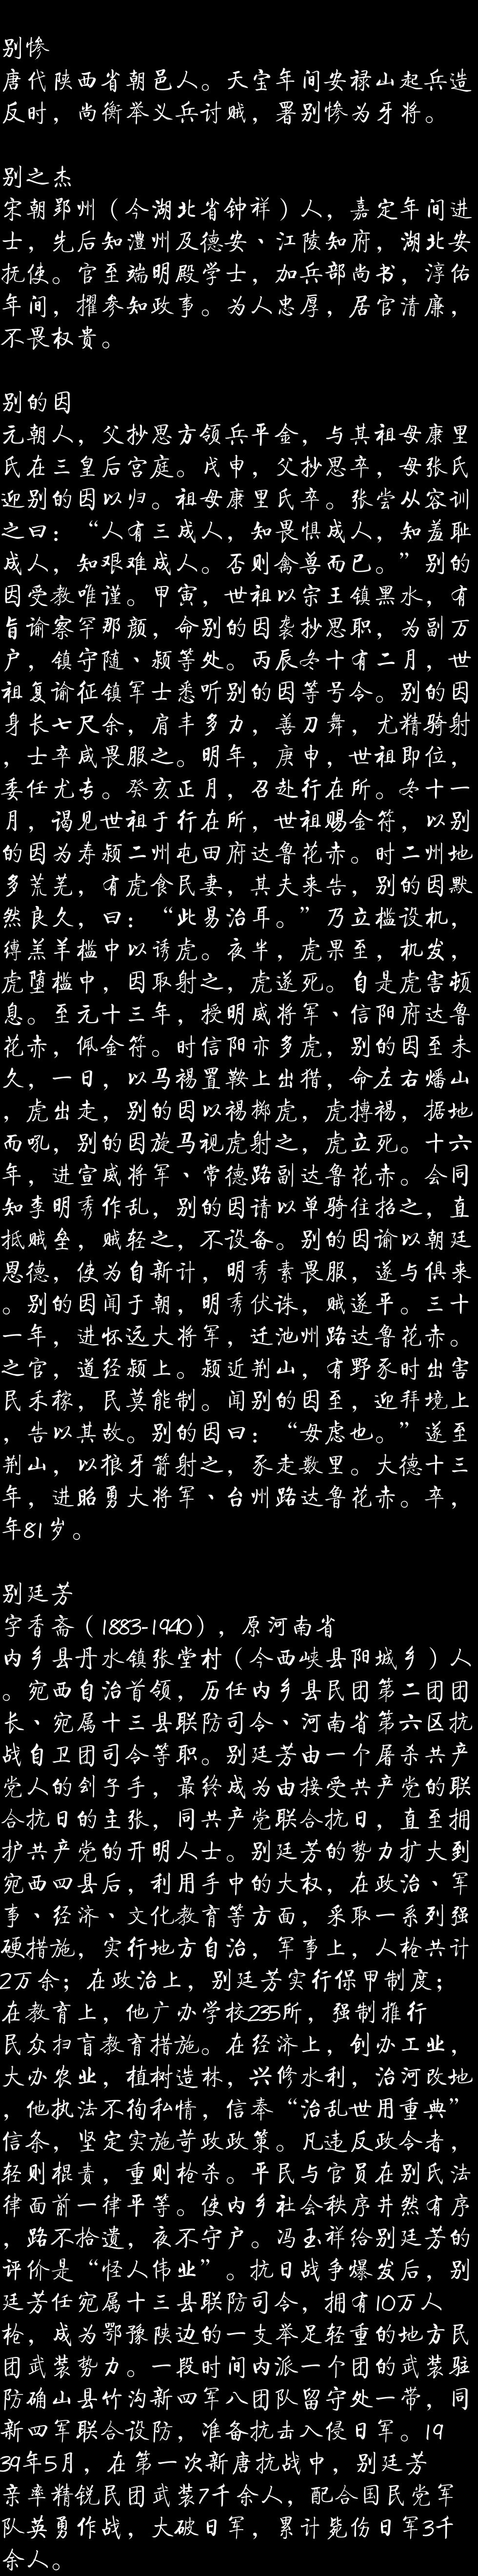 别惨
唐代陕西省朝邑人。天宝年间安禄山起兵造
反时，尚衡举义兵讨贼，署别惨为牙将。
别之杰
宋朝郢州（今湖北省钟祥）人，嘉定年间进
士，先后知澧州及德安、江陵知府，湖北安
抚使。官至端明殿学士，加兵部尚书，淳佑
年间，擢参知政事。为人忠厚，居官清廉，
不畏权贵。
别的因
元朝人，父抄思方领兵平金，与其祖母康里
氏在三皇后宫庭。戊申，父抄思卒，母张氏
迎别的因以归。祖母康里氏卒。张尝从容训
之曰：“人有三成人，知畏惧成人，知羞耻
成人，知艰难成人。否则禽兽而已。”别的
因受教唯谨。甲寅，世祖以宗王镇黑水，有
旨谕察罕那颜，命别的因袭抄思职，为副万
户，镇守随、颍等处。丙辰冬十有二月，世
祖复谕征镇军士悉听别的因等号令。别的因
身长七尺余，肩丰多力，善刀舞，尤精骑射
，士卒咸畏服之。明年，庚申，世祖即位，
委任尤专。癸亥正月，召赴行在所。冬十一
月，谒见世祖于行在所，世祖赐金符，以别
的因为寿颍二州屯田府达鲁花赤。时二州地
多荒芜，有虎食民妻，其夫来告，别的因默
然良久，曰：“此易治耳。”乃立槛设机，
缚羔羊槛中以诱虎。夜半，虎果至，机发，
虎堕槛中，因取射之，虎遂死。自是虎害顿
息。至元十三年，授明威将军、信阳府达鲁
花赤，佩金符。时信阳亦多虎，别的因至未
久，一日，以马裼置鞍上出猎，命左右燔山
，虎出走，别的因以裼掷虎，虎搏裼，据地
而吼，别的因旋马视虎射之，虎立死。十六
年，进宣威将军、常德路副达鲁花赤。会同
知李明秀作乱，别的因请以单骑往招之，直
抵贼垒，贼轻之，不设备。别的因谕以朝廷
恩德，使为自新计，明秀素畏服，遂与俱来
。别的因闻于朝，明秀伏诛，贼遂平。三十
一年，进怀远大将军，迁池州路达鲁花赤。
之官，道经颍上。颍近荆山，有野豕时出害
民禾稼，民莫能制。闻别的因至，迎拜境上
，告以其故。别的因曰：“毋虑也。”遂至
荆山，以狼牙箭射之，豕走数里。大德十三
年，进昭勇大将军、台州路达鲁花赤。卒，
年81岁。
别廷芳
字香斋（1883-1940），原河南省
内乡县丹水镇张堂村（今西峡县阳城乡）人
。宛西自治首领，历任内乡县民团第二团团
长、宛属十三县联防司令、河南省第六区抗
战自卫团司令等职。别廷芳由一个屠杀共产
党人的刽子手，最终成为由接受共产党的联
合抗日的主张，同共产党联合抗日，直至拥
护共产党的开明人士。别廷芳的势力扩大到
宛西四县后，利用手中的大权，在政治、军
事、经济、文化教育等方面，采取一系列强
硬措施，实行地方自治，军事上，人枪共计
2万余；在政治上，别廷芳实行保甲制度；
在教育上，他广办学校235所，强制推行
民众扫盲教育措施。在经济上，创办工业，
大办农业，植树造林，兴修水利，治河改地
，他执法不徇私情，信奉“治乱世用重典”
信条，坚定实施苛政政策。凡违反政令者，
轻则棍责，重则枪杀。平民与官员在别氏法
律面前一律平等。使内乡社会秩序井然有序
，路不拾遗，夜不守户。冯玉祥给别廷芳的
评价是“怪人伟业”。抗日战争爆发后，别
廷芳任宛属十三县联防司令，拥有10万人
枪，成为鄂豫陕边的一支举足轻重的地方民
团武装势力。一段时间内派一个团的武装驻
防确山县竹沟新四军八团队留守处一带，同
新四军联合设防，准备抗击入侵日军。19
39年5月，在第一次新唐抗战中，别廷芳
亲率精锐民团武装7千余人，配合国民党军
队英勇作战，大破日军，累计毙伤日军3千
余人。